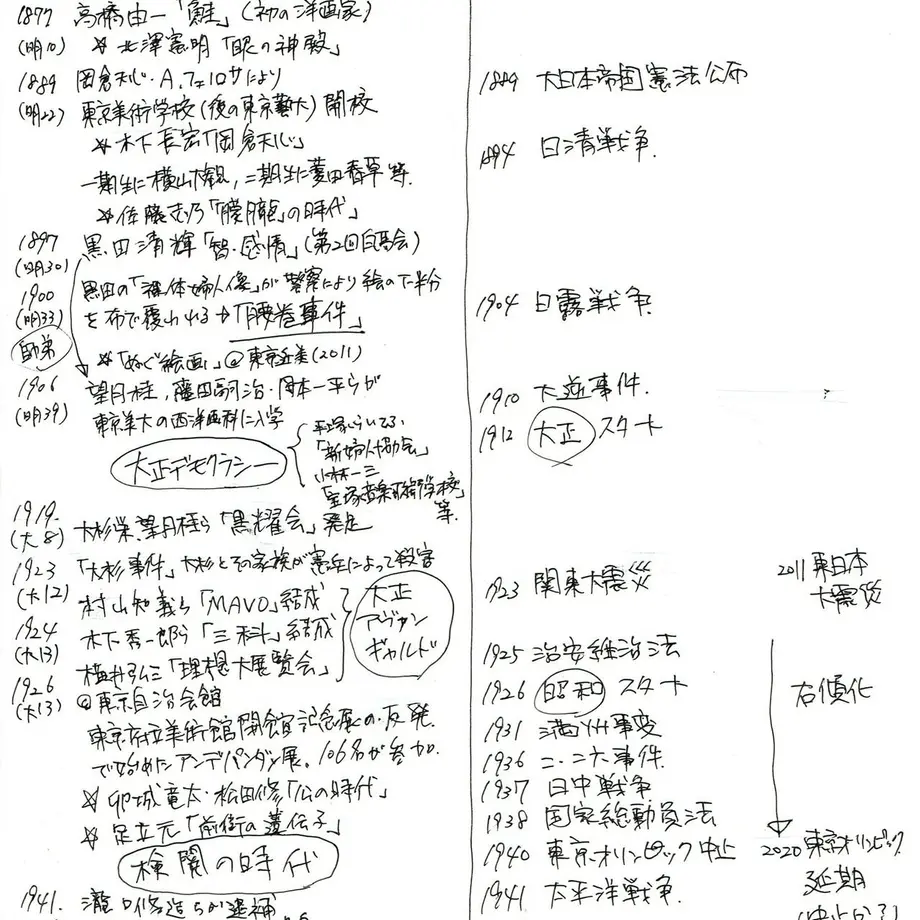 1877 高橋由一「鮭」(初の洋画家)
(明10) ☆北澤憲明「眼の神殿」
1889 岡倉天心・A.フェロサにより
(明22) 東京美術学校(後の東京藝大)開校
☆木下長宏「岡倉天心」
一期生に横山大観，二期生に菱田春草 等.
☆佐藤志乃「「朦朧」の時代」
1897 黒田清輝「智・感情」(第2回白馬会)
(明30)
1900 黒田の「裸体婦人像」が警察により絵の下半分
(明33) を布で覆われる→「腰巻事件」
師弟
☆「ぬぐ絵画」@東京近美(2011)
1906 望月桂，藤田嗣治・岡本一平らが
(明39) 東京美大の西洋画科に入学
大正デモクラシー
平塚らいてう，
「新婦人協会」
小林一三
「宝塚音楽歌劇学校」
等.
1919. 大杉栄，望月桂ら「黒耀会」発足
(大8)
1923 「大杉事件」大杉とその家族が憲兵によって殺害
(大12) 村山知義ら「MAVO」結成
1924 木下秀一郎ら「三科」結成
(大13)
大正
アヴァン
ギャルド
1926 横井弘三「理想大展覧会」
(大13) @東京自治会館
東京府立美術館開館記念展の・反発
で始めたアンデパンダン展。106名が参加.
☆卯城竜太・松田修「公の時代」
☆足立元「前衛の遺伝子」
検閲の時代
1941. 瀧口修造らが逮捕
1889 大日本帝国憲法公布
1894 日清戦争.
1904 日露戦争
1910 大逆事件.
1912 大正 スタート
1923 関東大震災
1925 治安維持法
1926 昭和 スタート
1931 満州事変
1936 二・二六事件.
1937 日中戦争
1938 国家総動員法
1940 東京オリンピック中止
1941 太平洋戦争.
2011 東日本
大震災
右傾化
2020 東京オリンピック
延期